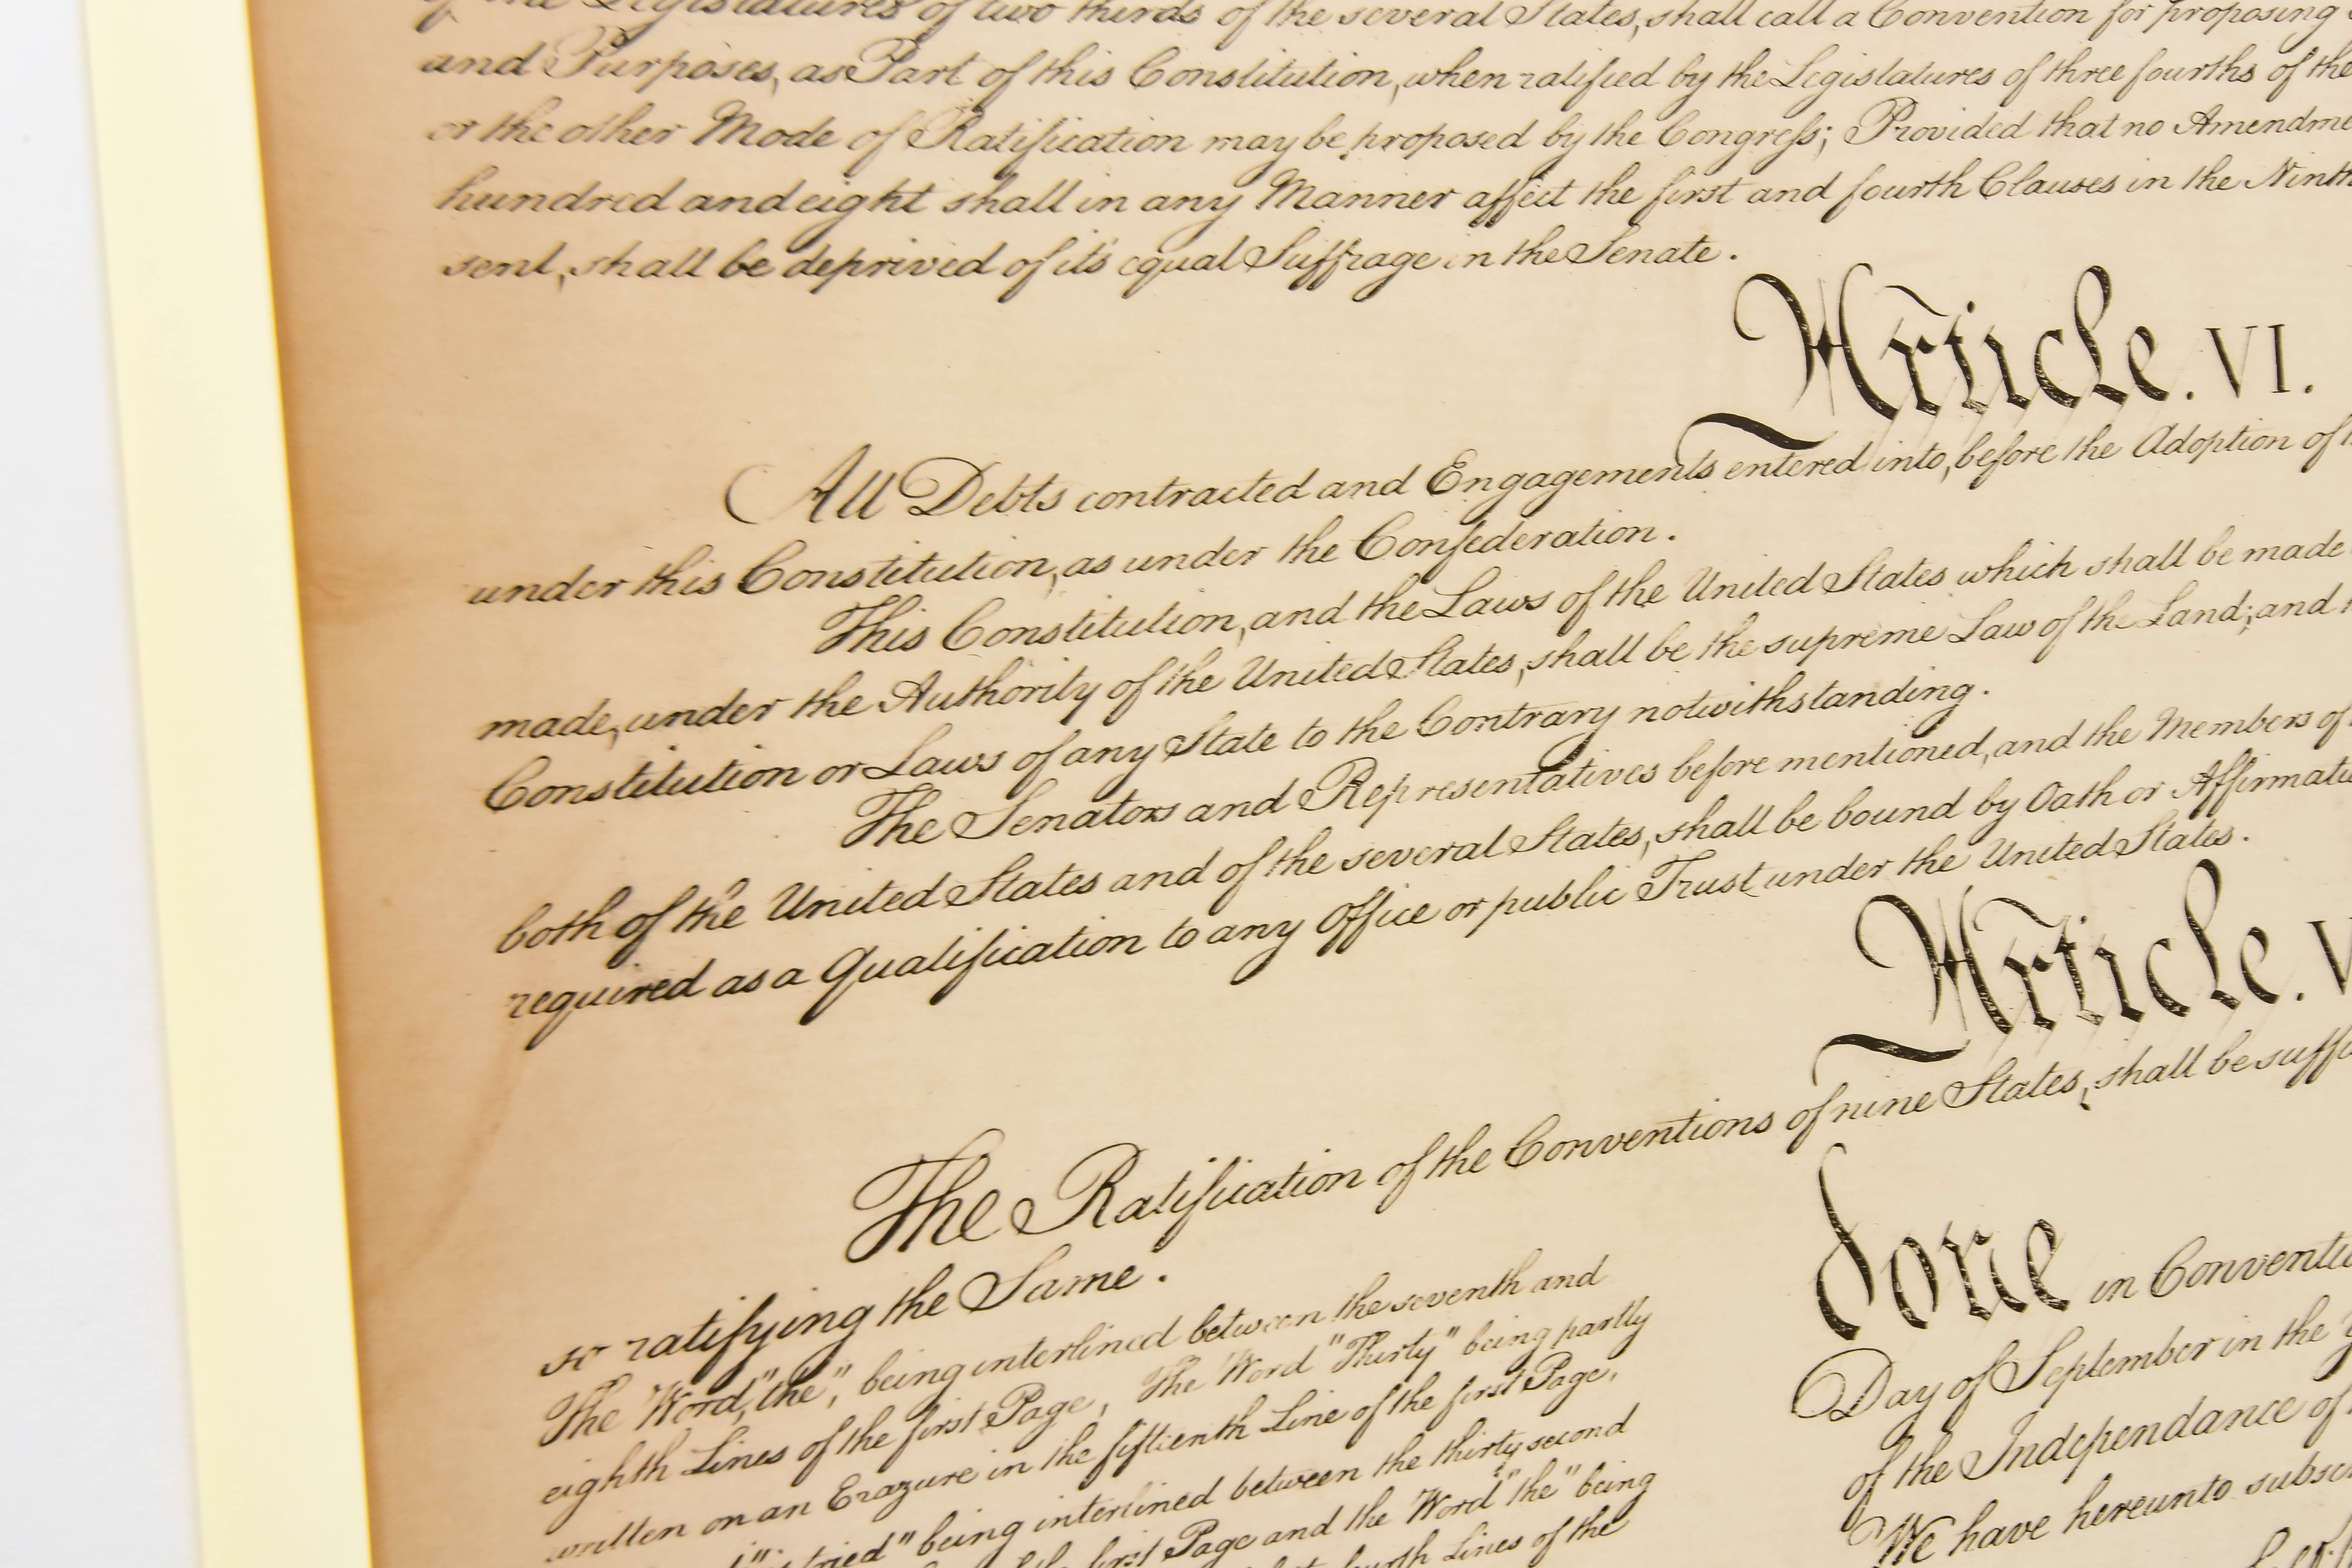 of the Legislatures of two thirds of the several States, shall call a Convention for proposing
and Purposes, as Part of this Constitution, when ratified by the Legislatures of three fourths of the
or the other Mode of Ratification may be proposed by the Congress; Provided that no Amendme
hundred and eight shall in any Manner affect the first and fourth Clauses in the Ninth
sent, shall be deprived of it's equal Suffrage in the Senate.
Article. VI.
All Debts contracted and Engagements entered into, before the Adoption of
under this Constitution, as under the Confederation.
This Constitution, and the Laws of the United States which shall be made
made, under the Authority of the United States, shall be the supreme Law of the Land; and
Constitution or Laws of any State to the Contrary notwithstanding.
The Senators and Representatives before mentioned, and the Members of
both of the United States and of the several States, shall be bound by Oath or Affirmati
required as a Qualification to any Office or public Trust under the United States.
Article. V
The Ratification of the Conventions of nine States, shall be suffi
so ratifying the Same.
The Word, "the", being interlined between the seventh and
eighth Lines of the first Page, The Word "Thirty" being partly
written on an Erazure in the fifteenth Line of the first Page,
tried" being interlined between the thirty second
first Page and the Word "the" being
fourth Lines of the
done in Conventi
Day of September in the
of the Independance of
We have hereunto subsc